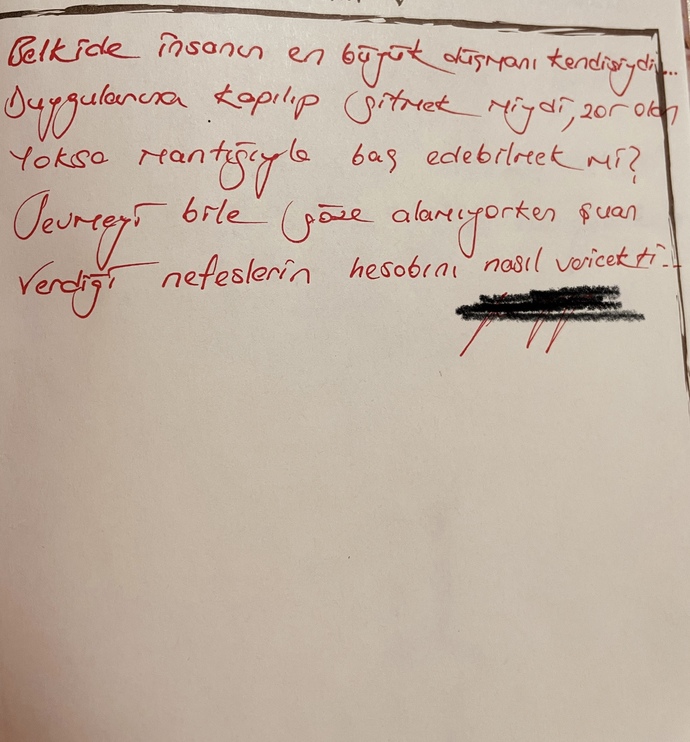 Belkide insanın en büyük düşmanı kendisiydi...
Duygularına kapılıp gitmek miydi, zor olan
Yoksa mantığıyla baş edebilmek mi?
Sevmeyi bile göze alamıyorken şuan
Verdiği nefeslerin hesabını nasıl vericekti...